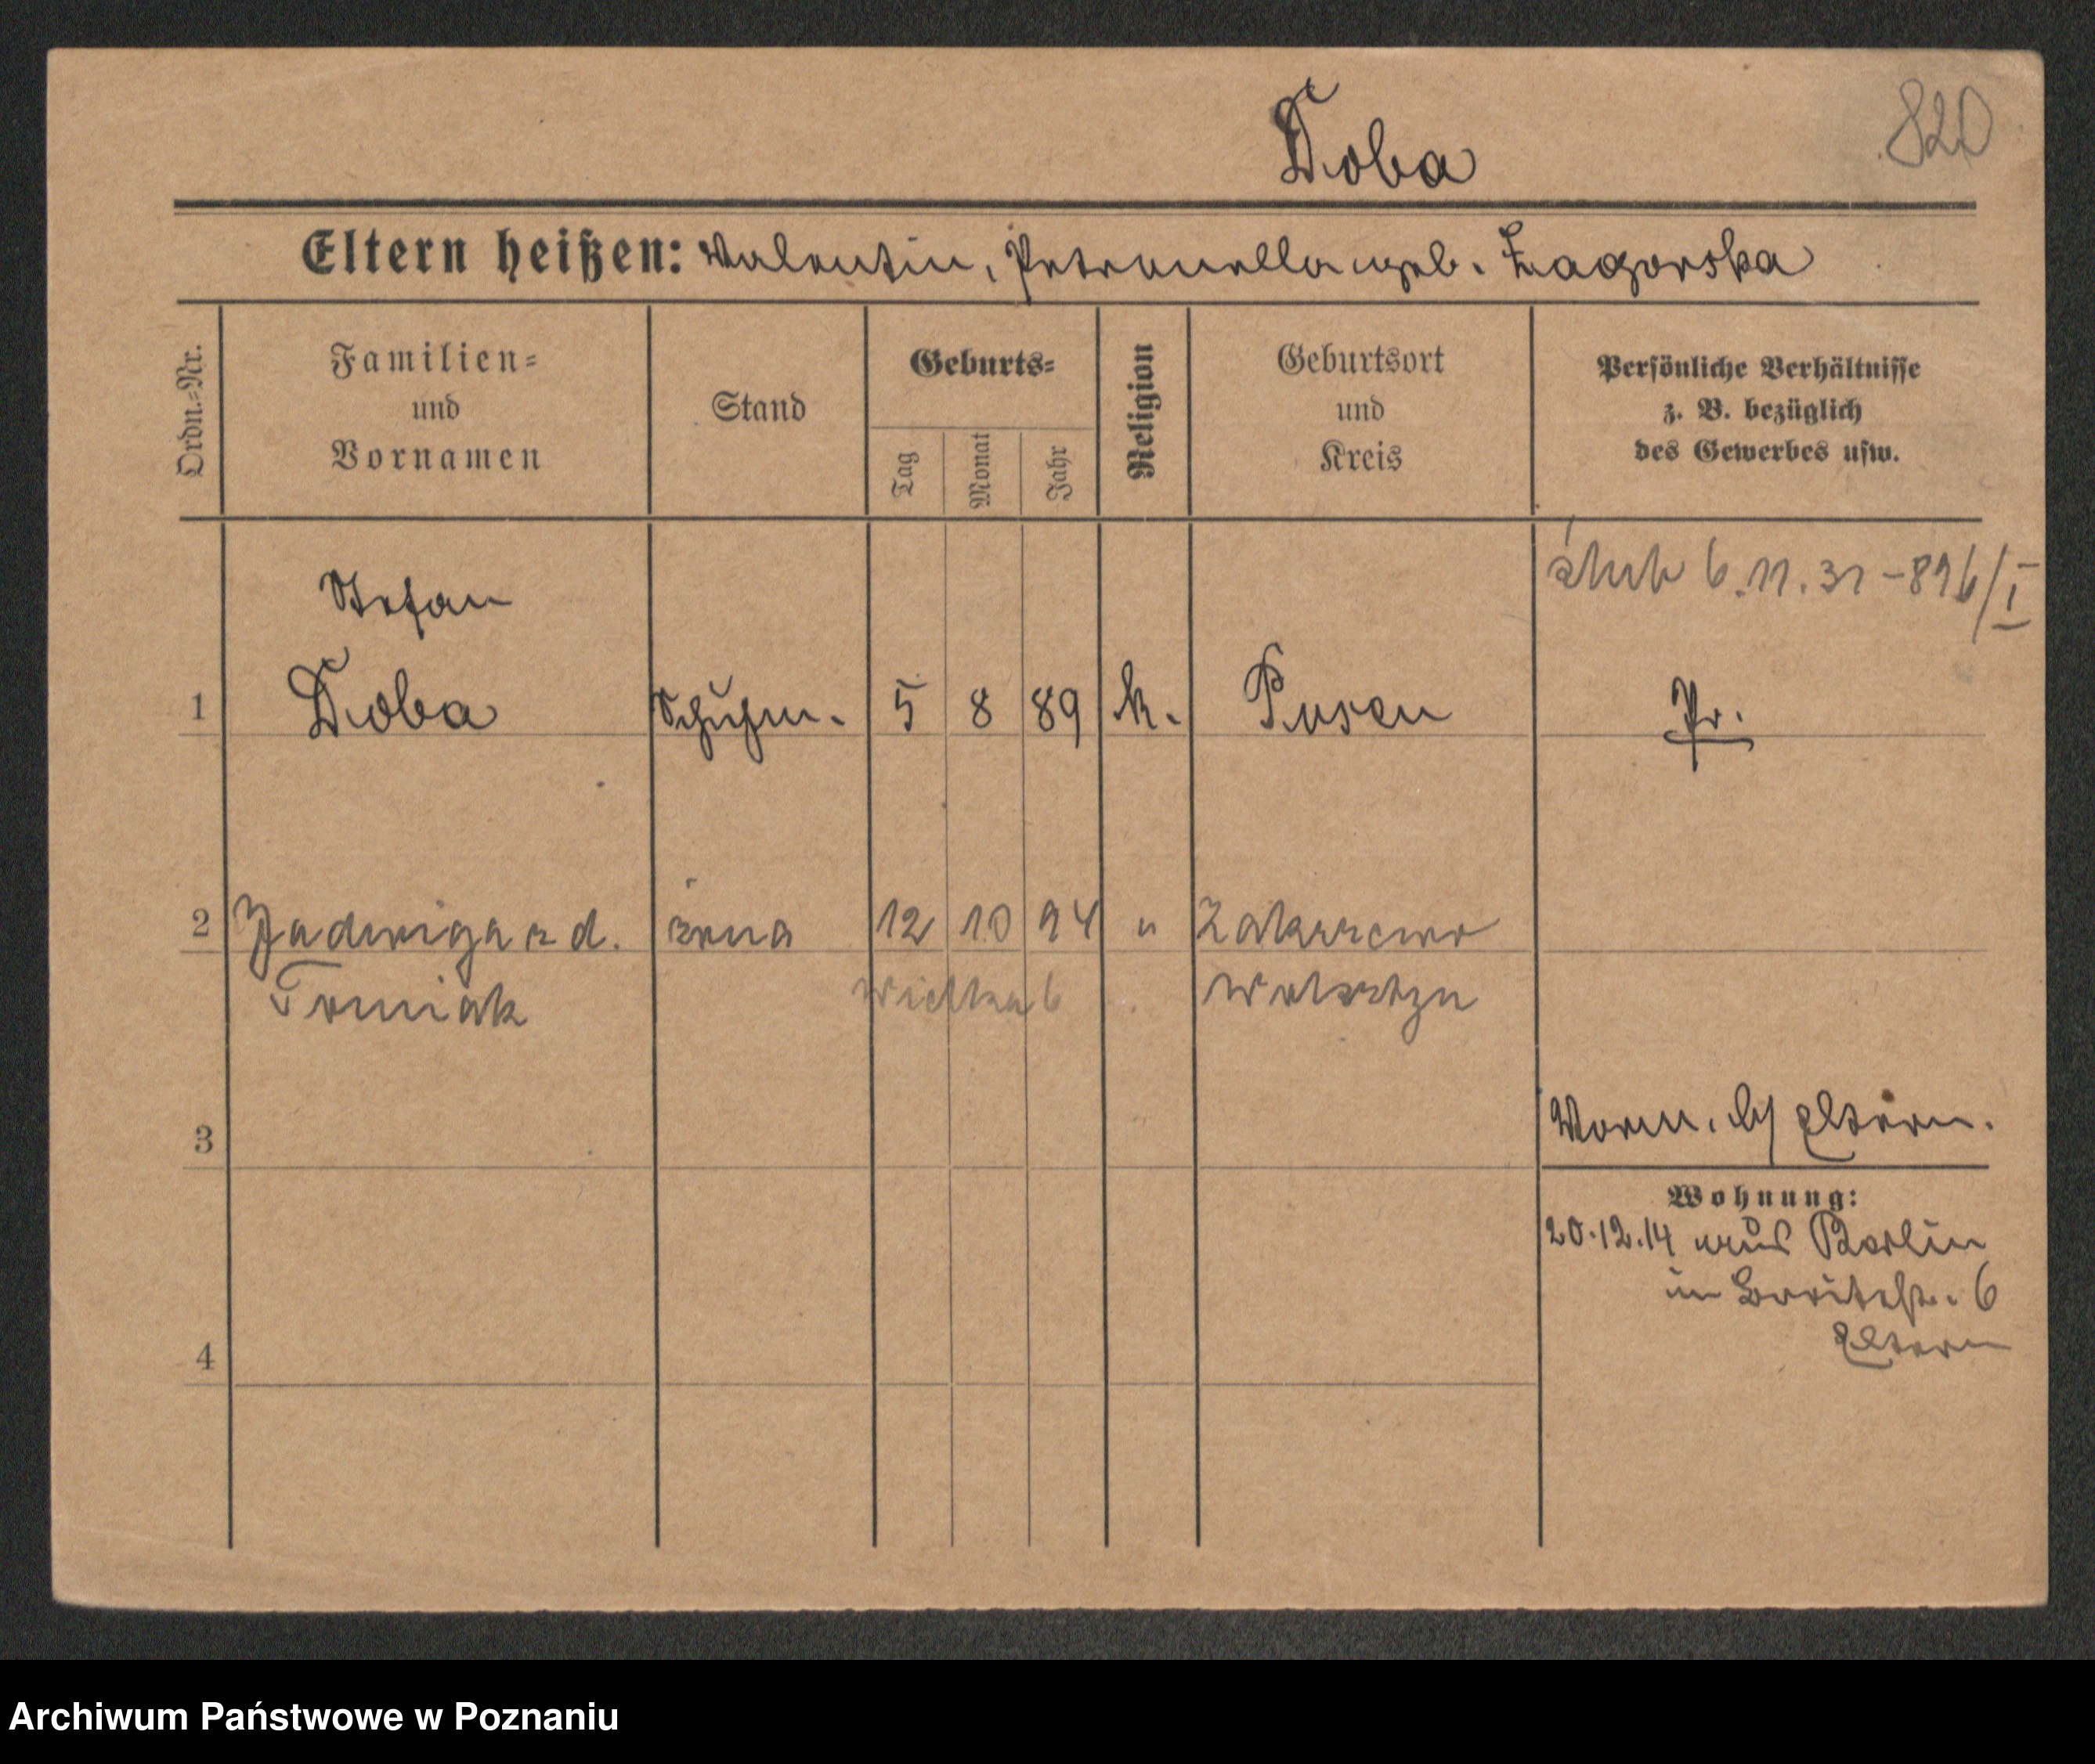 Doba
820
Eltern heißen: Valentin, Petronella geb. Zagorska
Ordn.-Nr.
Familien-
und
Vornamen
Stand
Geburts-
Tag
Monat
Jahr
Religion
Geburtsort
und
Kreis
Persönliche Verhältnisse
z. B. bezüglich
des Gewerbes usw.
ślub 6.11.31 - 896/I
Stefan
1 Doba Schuhm. 5 8 89 k. Posen Pr.
2 Jadwiga z d. żona 12 10 94 "
Tomiak Wielka 6 Wolsztyn
3 Eltern.
Wohnung:
20.12.14 aus Berlin
in Breitestr. 6
Eltern
4
Archiwum Państwowe w Poznaniu